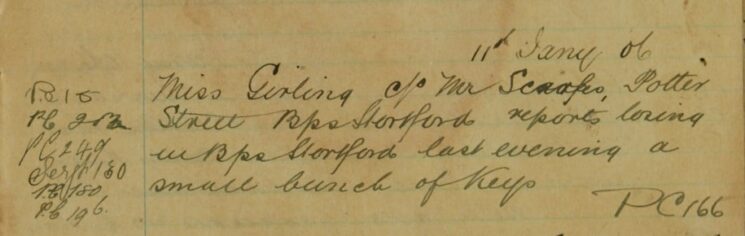 11th Jany 06
Miss Girling c/o Mr Scarfes, Potter
Street Bps Stortford reports losing
in Bps Stortford last evening a
small bunch of Keys
PC 166
P.C 15
PC 249
Sergt 130
P.C 180
P.C 196.